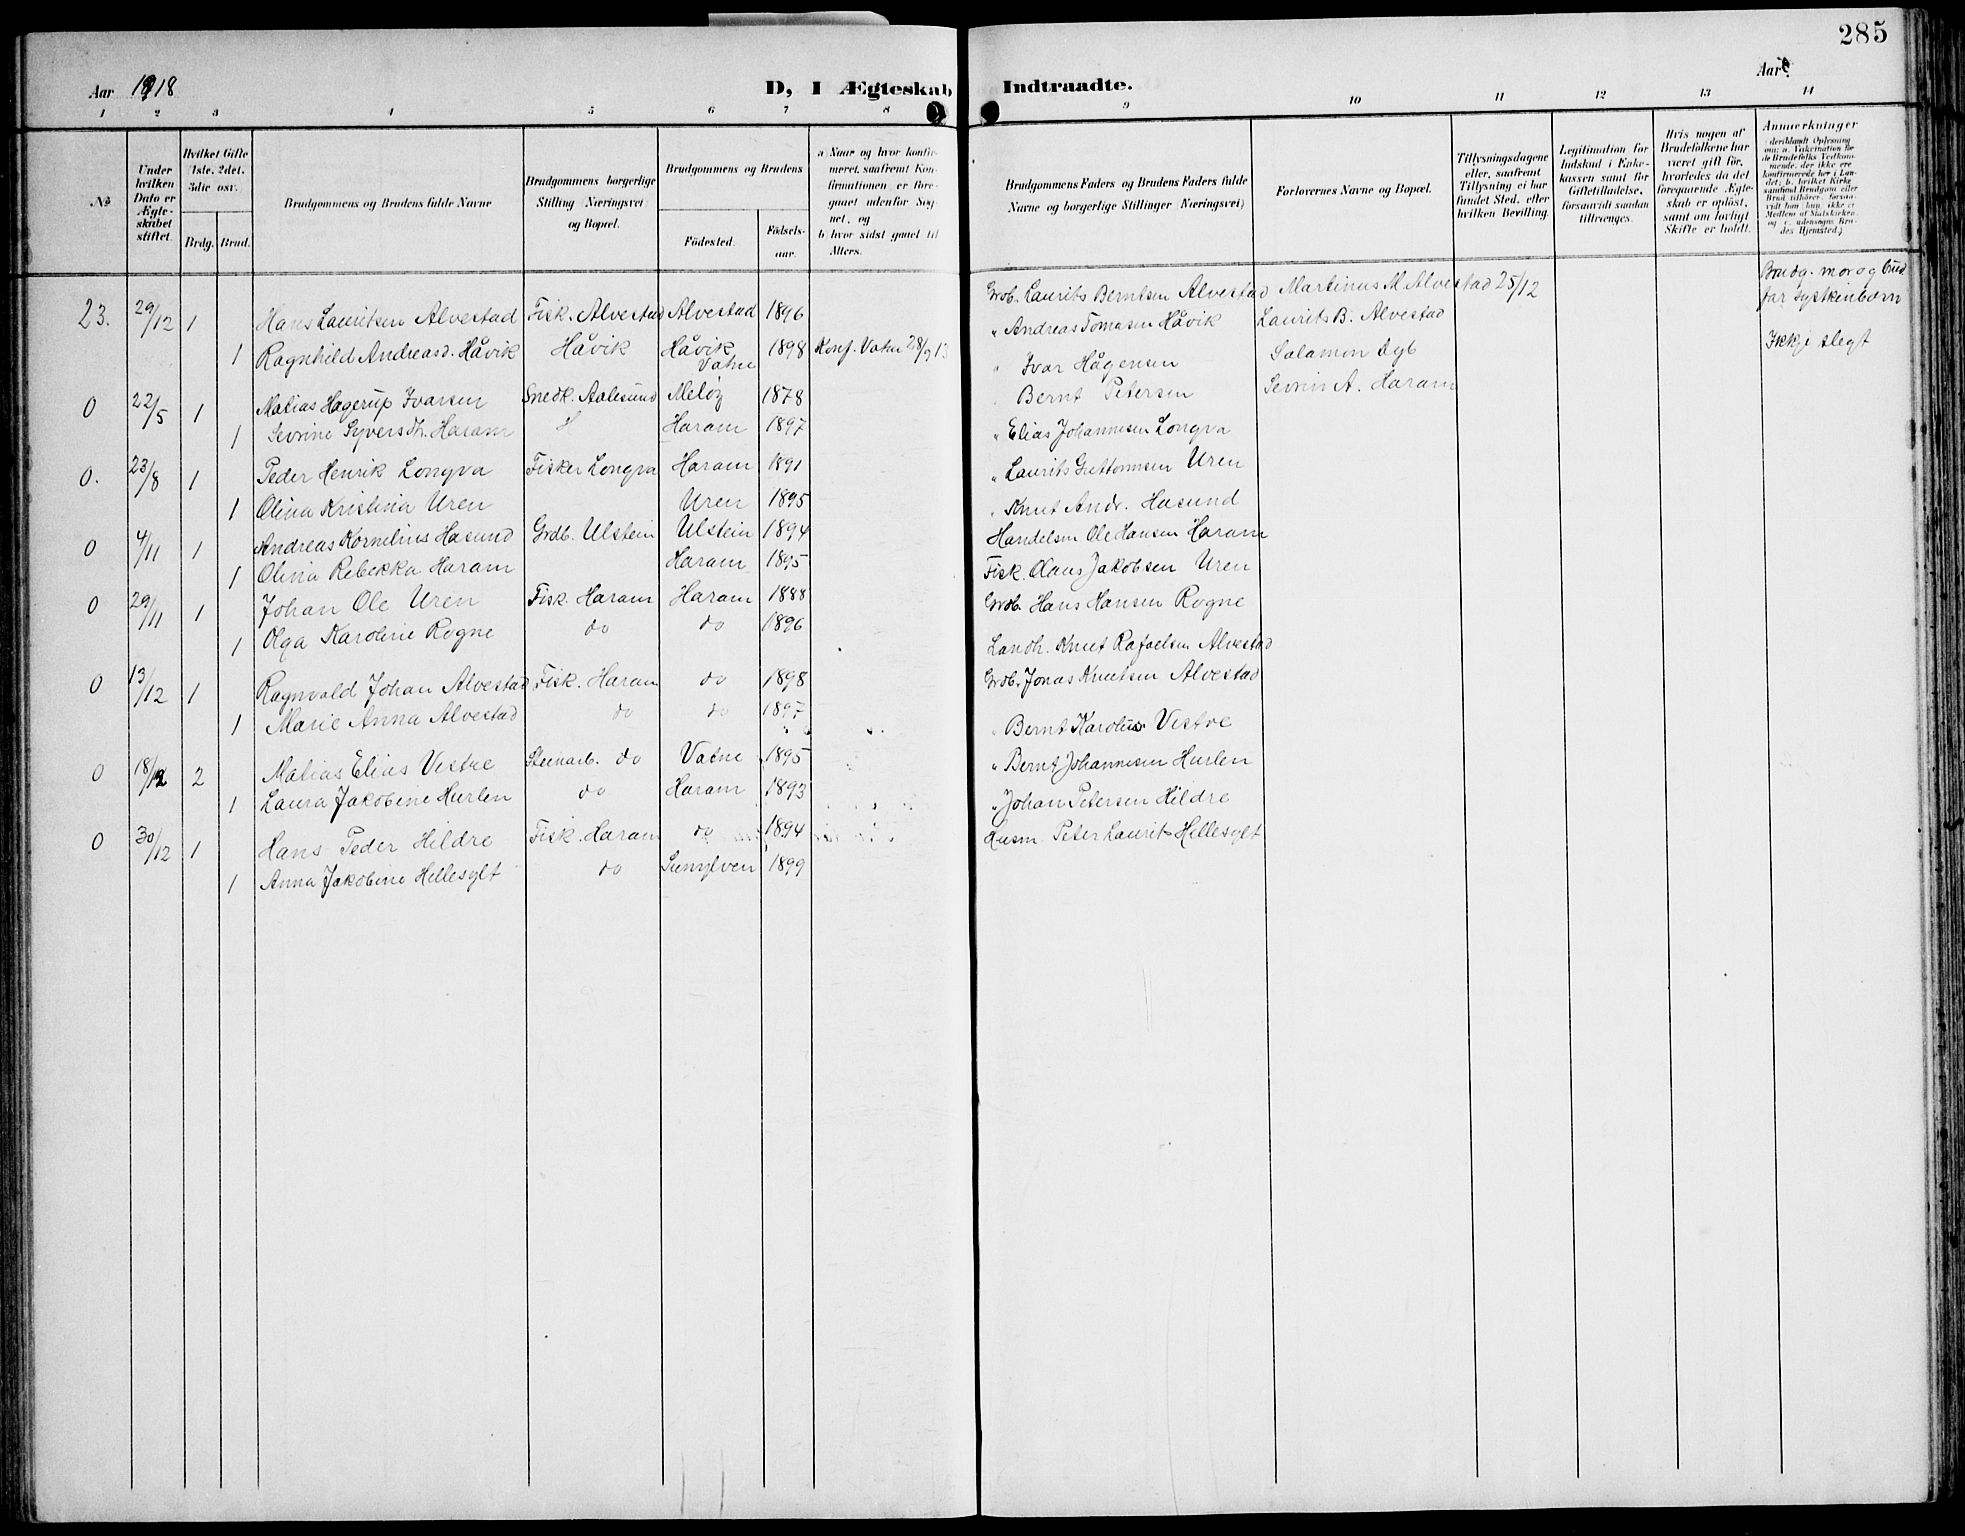 285
Aar 1918
D, I Ægteskab Indtraadte.
Aar
1 2 3 4 5 6 7 8 9 10 11 12 13 14
№
Under hvilken Dato er Ægteskabet stiftet.
Hvilket Gifte 1ste, 2det, 3die osv.
Brdg. Brud.
Brudgommens og Brudens fulde Navne
Brudgommens borgerlige Stilling (Næringsvei) og Bopæl.
Brudgommens og Brudens
Födested.
Födsels-aar.
a) Naar og hvor konfirmeret, saafremt Konfirmationen er foregaaet udenfor Sognet, og
b) hvor sidst gaaet til Alters.
Brudgommens Faders og Brudens Faders fulde Navne og borgerlige Stillinger (Næringsvei)
Forlovernes Navne og Bopæl.
Tillysningsdagene eller, saafremt Tillysning ei har fundet Sted, efter hvilken Bevilling.
Legitimation for Indskud i Enkekassen samt for Giftetilladelse, forsaavidt saadan tiltrænges.
Hvis nogen af Brudefolkene har været gift för, hvorledes da det foregaaende Ægteskab er oplöst, samt om lovligt Skifte er holdt.
Anmerkninger
23. 29/12 1 Hans Lauritsen Alvestad Fisk. Alvestad Alvestad 1896 Grdb. Laurits Berntsen Alvestad Martinus M. Alvestad 25/12 Brudg. mor og brud
far syskinbørn
1 Ragnhild Andreasd. Håvik Håvik Håvik Vatne 1898 Konf. Vatne 28/9 13 " Andreas Tomasen Håvik Laurits B. Alvestad
0 22/5 1 Matias Hagerup Ivarsen Snedk. Aalesund Meløy 1878 " Ivar Hågensen Salamon Dyb Ikkje slegt
1 Sevrine Syversdtr. Haram Haram 1897 Bernt Petersen Sevrin A. Haram
0. 23/8 1 Peder Henrik Longva Fisker Longva Haram 1891 " Elias Johannesen Longva
1 Olina Kristina Uren Uren 1895 " Laurits Guttormsen Uren
0 4/11 1 Andreas Kornelius Hasund Grdb. Ulstein Ulstein 1894 " Knut Andr. Hasund
1 Olina Rebekka Haram Haram 1895 Handelsm Ole Hansen Haram
0 29/11 1 Johan Ole Uren Fisk. Haram Haram 1888 Fisk. Olaus Jakobsen Uren
1 Olga Karoline Rogne do do 1896 Grdb. Hans Hansen Rogne
0 13/12 1 Ragnvald Johan Alvestad Fisk. Haram do 1898 Landh. Knut Rafaelsen Alvestad
1 Marie Anna Alvestad do do 1897 Grdb. Jonas Knutsen Alvestad
0 18/12 2 Matias Elias Vestre Steinarb. do Vatne 1895 " Bernt Karolus Vestre
1 Laura Jakobine Hurlen do Haram 1893 " Bernt Johannesen Hurlen
0 30/12 1 Hans Peder Hildre Fisk. Haram do 1894 " Johan Petersen Hildre
1 Anna Jakobine Hellesylt do Sunylven 1899 Husm. Peter Laurits Hellesylt